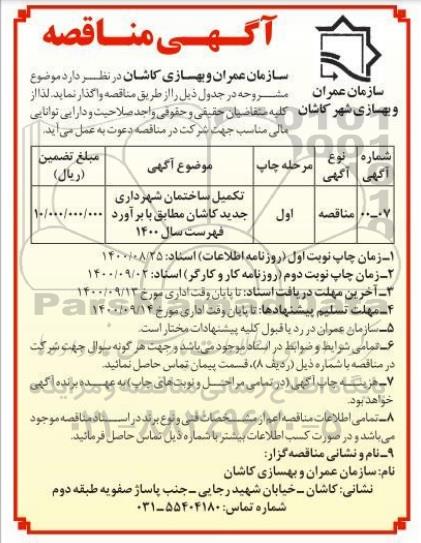 آگهی مناقصه
سازمان عمران
و بهسازی شهر کاشان
سازمان عمران و بهسازی کاشان در نظر دارد موضوع
مشروحه در جدول ذیل را از طریق مناقصه واگذار نماید. لذا از
کلیه متقاضیان حقیقی و حقوقی واجد صلاحیت و دارایی توانایی
مالی مناسب جهت شرکت در مناقصه دعوت به عمل می آید.
شماره آگهی | نوع آگهی | مرحله چاپ | موضوع آگهی | مبلغ تضمین (ریال)
۰۰-۰۷ | مناقصه | اول | تکمیل ساختمان شهرداری جدید کاشان مطابق با برآورد فهرست سال ۱۴۰۰ | ۱۰/۰۰۰/۰۰۰/۰۰۰
۱-زمان چاپ نوبت اول (روزنامه اطلاعات) اسناد: ۱۴۰۰/۰۸/۲۵
۲-زمان چاپ نوبت دوم (روزنامه کار و کارگر) اسناد: ۱۴۰۰/۰۹/۰۲
۳-آخرین مهلت دریافت اسناد: تا پایان وقت اداری مورخ ۱۴۰۰/۰۹/۱۳
۴-مهلت تسلیم پیشنهادها: تا پایان وقت اداری مورخ ۱۴۰۰/۰۹/۱۴
۵-سازمان عمران در رد یا قبول کلیه پیشنهادات مختار است.
۶-تمامی شرایط و ضوابط در اسناد موجود می باشد و جهت هر گونه سوال جهت شرکت
در مناقصه با شماره ذیل (ردیف ۸)، قسمت پیمان تماس حاصل نمائید.
۷-هزینه چاپ آگهی (در تمامی مراحل و نوبت های چاپ) به عهده برنده آگهی
خواهد بود.
۸-تمامی اطلاعات مناقصه اعم از مشخصات فنی و نوع برند در اسناد مناقصه موجود
می باشد و در صورت کسب اطلاعات بیشتر با شماره ذیل تماس حاصل فرمائید.
۹-نام و نشانی مناقصه گزار:
نام: سازمان عمران و بهسازی کاشان
نشانی: کاشان - خیابان شهید رجایی - جنب پاساژ صفویه طبقه دوم
شماره تماس: ۵۵۴۰۴۱۸۰-۰۳۱